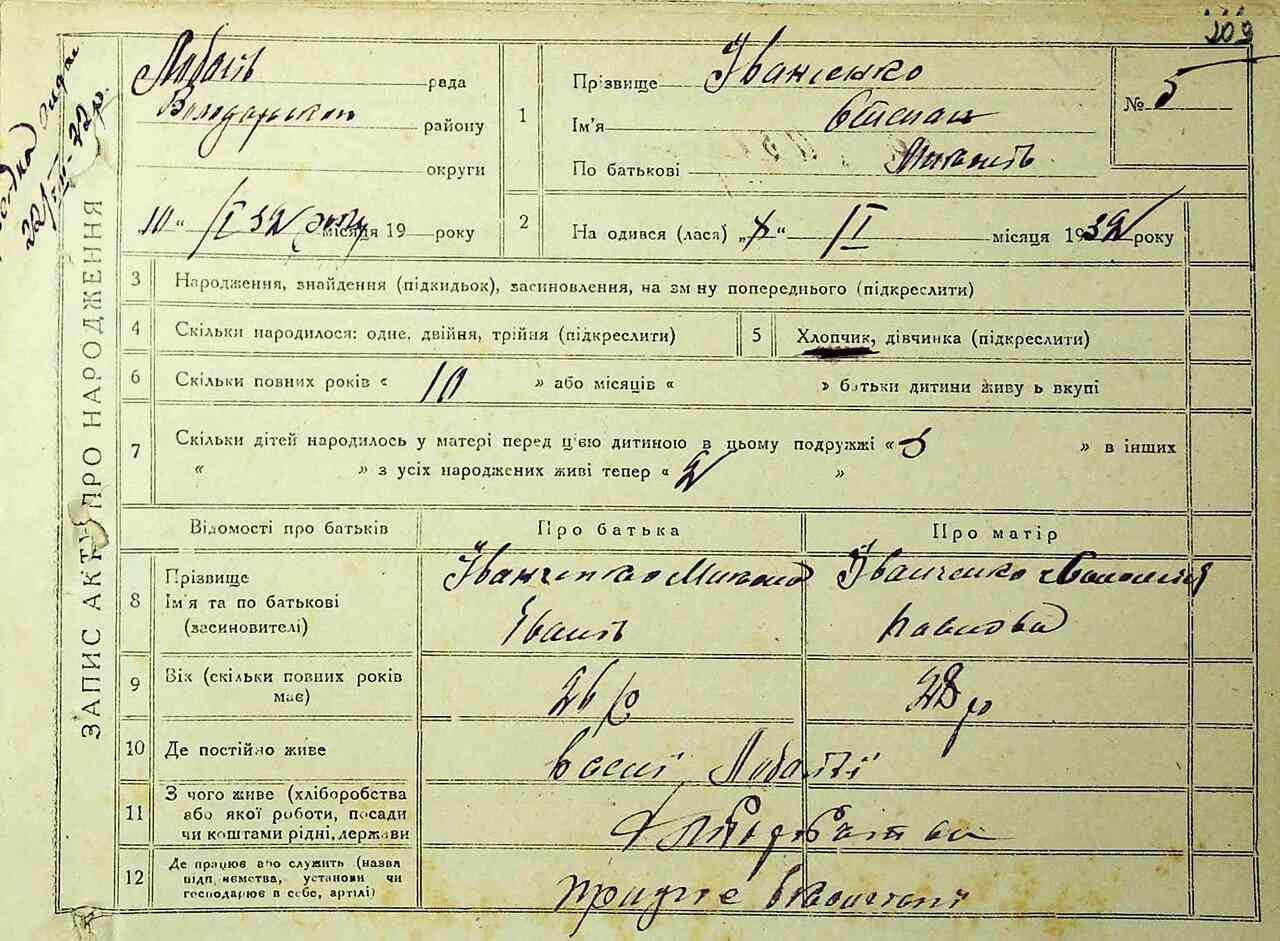 209
22/III-32 р.
ЗАПИС АКТУ ПРО НАРОДЖЕННЯ
рада
Володарського району
округи
10 " /I 32 року місяця 19 року
1
Прізвище Іванченко
Ім'я Степан
По батькові Миколів
№ 5
2
На одився (лася) „ " /I місяця 1932 року
3 Народження, знайдення (підкидьок), засиновлення, на зм ну попереднього (підкреслити)
4 Скільки народилося: одне, двійня, трійня (підкреслити)
5 Хлопчик, дівчинка (підкреслити)
6 Скільки повних років « 10 » або місяців « » батьки дитини живу ь вкупі
7 Скільки дітей народилось у матері перед ц'єю дитиною в цьому подружжі « 3 » в інших
« » з усіх народжених живі тепер « 2 »
Відомості про батьків
Про батька
Про матір
8
Прізвище
Ім'я та по батькові
(засиновителі)
Іванченко Микола
Іванів
Іванченко
Павлова
9 Вік (скільки повних років
має)
26 р
28 р
10 Де постійно живе
в селі Лобачеві
11
З чого живе (хліборобства
або якої роботи, посади
чи коштами рідні, держави
Хліборобства
12
Де працює або служить (назва
підп иємства, установи чи
господарює в себе, артілі)
працює в колгоспі